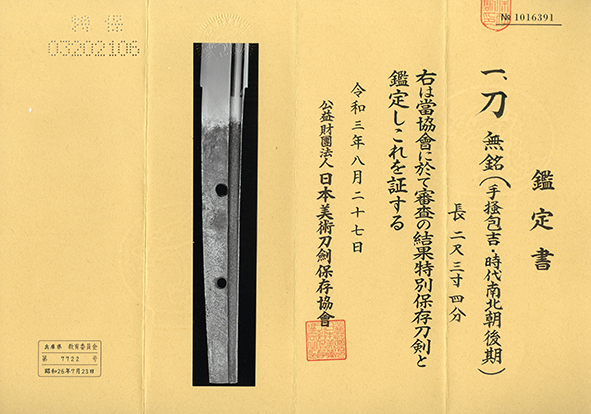 № 1016391
鑑定書
一、刀 無銘(手掻包吉・時代南北朝後期)
長 二尺三寸四分
右は當協會に於て審査の結果特別保存刀剣と
鑑定しこれを証する
令和三年八月二十七日
公益財團法人 日本美術刀劍保存協會
特保
03202106
兵庫県 教育委員会
第 7722 号
昭和26年7月23日